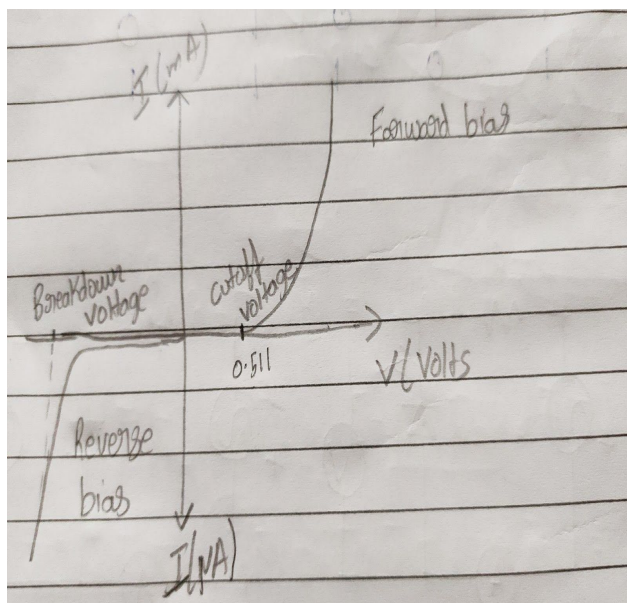 I(mA)
Forward bias
Breakdown
voltage
cutoff
voltage
0.511
V(Volts
Reverse
bias
I(μA)